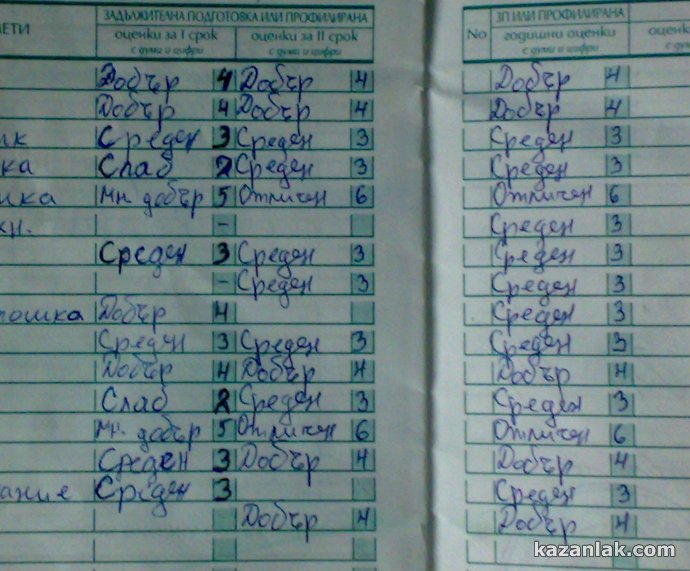 ЗАДЪЛЖИТЕЛНА ПОДГОТОВКА ИЛИ ПРОФИЛИРАНА
МЕТИ оценки за I срок оценки за II срок
с думи и цифри с думи и цифри
Добър 4 Добър 4
Добър 4 Добър 4
ик Среден 3 Среден 3
ка Слаб 2 Среден 3
ика Мн. добър 5 Отличен 6
хн. -
Среден 3 Среден 3
- Среден 3
Добър 4
Среден 3 Среден 3
Добър 4 Добър 4
Слаб 2 Среден 3
Мн. добър 5 Отличен 6
Среден 3 Добър 4
ание Среден 3
Добър 4
ЗП ИЛИ ПРОФИЛИРАНА
No годишни оценки оценк
с думи и цифри с ду
Добър 4
Добър 4
Среден 3
Среден 3
Отличен 6
Среден 3
Среден 3
Среден 3
Среден 3
Среден 3
Добър 4
Среден 3
Отличен 6
Добър 4
Среден 3
Добър 4
kazanlak.com